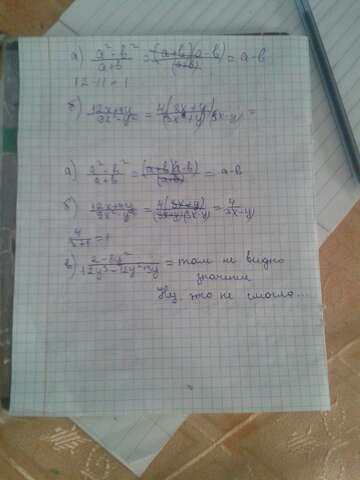 а) (a² - b²)/(a+b) = (a+b)(a-b)/(a+b) = a-b
12-11=1
б) (12x+4y)/(9x²-y²) = 4(3x+y)/(3x+y)(3x-y) =
а) (a² - b²)/(a+b) = (a+b)(a-b)/(a+b) = a-b
б) (12x+4y)/(9x²-y²) = 4(3x+y)/(3x+y)(3x-y) = 4/(3x-y)
= 1
в) = там не видно
значений
Ну, это не смогла...